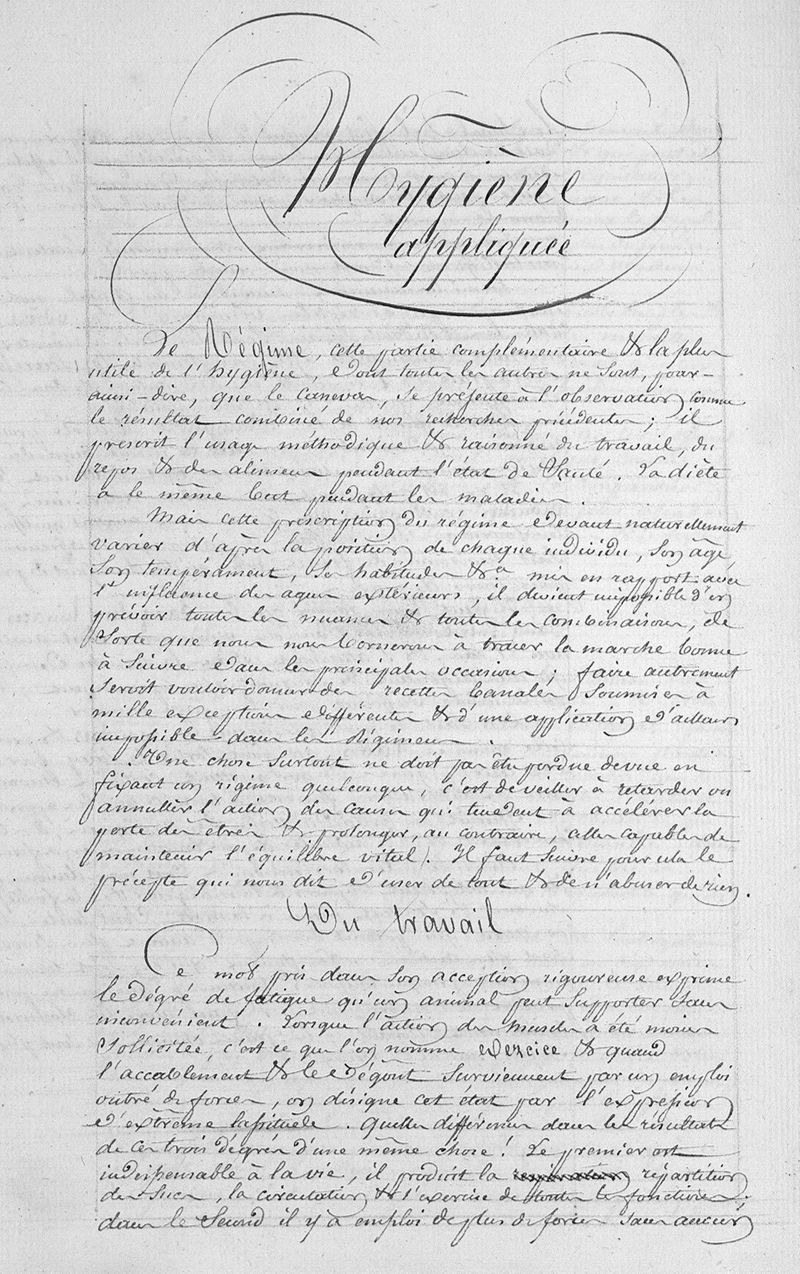 Hygiène
appliquée
Le Régime, cette partie complémentaire & la plus
utile de l'hygiène, & dont toutes les autres ne sont, pour-
ainsi-dire, que le canevas, se présente à l'observation comme
le résultat combiné de nos recherches précédentes ; il
prescrit l'usage méthodique & raisonné du travail, du
repos & des alimens pendant l'état de Santé. La diète
a le même but pendant les maladies.
Mais cette prescription du régime devant naturellement
varier d'après la position de chaque individu, son âge
son tempérament, ses habitudes &a. mis en rapport avec
l'influence des agens extérieurs, il devient impossible d'en
prévoir toutes les nuances & toutes les combinaisons, de
sorte que nous nous bornerons à tracer la marche bonne
à suivre dans les principales occasions ; faire autrement
seroit vouloir donner des recettes banales soumises à
mille exceptions différentes & d'une application d'ailleurs
impossible dans les Régimens.
Une chose surtout ne doit pas être perdue de vue en
fixant un régime quelconque, c'est de veiller à retarder ou
annuller l'action des causes qui tendent à accélérer la
perte des êtres & prolonger, au contraire, celles capables de
maintenir l'équilibre vital. Il faut suivre pour cela le
précepte qui nous dit d'user de tout & de n'abuser de rien.
Du travail
Ce mot pris dans son acception rigoureuse exprime
le dégré de fatigue qu'un animal peut supporter sans
inconvénient. Lorsque l'action des muscles a été moins
sollicitée, c'est ce que l'on nomme exercice & quand
l'accablement & le dégout surviennent par un emploi
outré de forces, on désigne cet état par l'expression
d'extrême lassitude. Quelles différences dans les résultats
de ces trois dégrés d'une même chose ! Le premier est
indispensable à la vie, il produit la répartition
des sucs, la circulation & l'exercice de toutes les fonctions ;
dans le second il y a emploi de plus de forces sans aucun